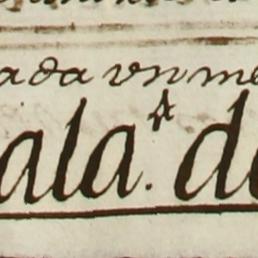 ada un me
ala. de